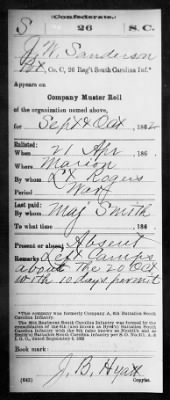 (Confederate.)
S 26 S.C.
J. W. Sanderson
Pvt, Co. C, 26 Reg't South Carolina Inf.*
Appears on
Company Muster Roll
of the organization named above,
for Sept & Oct, 186
Enlisted:
When 21 Apr, 186
Where Marion
By whom Lt Rogers
Period War
Last paid:
By whom Maj Smith
To what time, 186
Present or absent Absent
Remarks: Left Camps
about the 20 Oct
with 10 days permit
*This company was formerly Company A, 6th Battalion South
Carolina Infantry.
The 26th Regiment South Carolina Infantry was formed by the
consolidation of the 6th
Battalion South Carolina
Infantry
Book mark:
J. B. Hyatt
(642) Copyist.